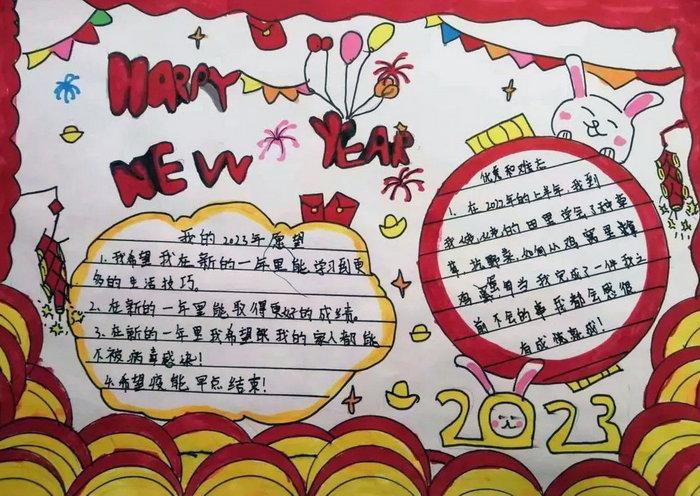 HAPPY
NEW YEAR
我的2023年愿望
1.我希望我在新的一年里能学习到更
多的生活技巧。
2.在新的一年里能取得更好的成绩。
3.在新的一年里我希望跟我的家人都能
不被病毒感染!
4.希望疫能早点结束!
优美和难忘
1.在2022年的上半年,我到
我的日里学会了种草
草、找野菜、如何从鸡窝里
当我完成了一件我之
前不会的事我都会感很
有成就感!
2023